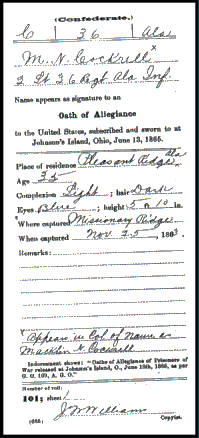 (Confederate.)
C 36 Ala
M. N. Cockrell x
2 Lt 36 Regt Ala Inf.
Name appears as signature to an
Oath of Allegiance
to the United States, subscribed and sworn to at
Johnson's Island, Ohio, June 13, 1865.
Place of residence Pleasant Ridge Ala
Age 35
Complexion Light ; hair Dark
Eyes Blue ; height 5 ft. 10 in.
Where captured Missionary Ridge
When captured Nov 25 , 1863.
Remarks:
x Appears in Col of Name as
N. Cockrell
Indorsement shows: "Oaths of Allegiance of Prisoners of
War released at Johnson's Island, O., June 13th, 1865, as per
G. O. 109, A. G. O."
Number of roll:
101; sheet 1
J W Williams
(065) Copyist.